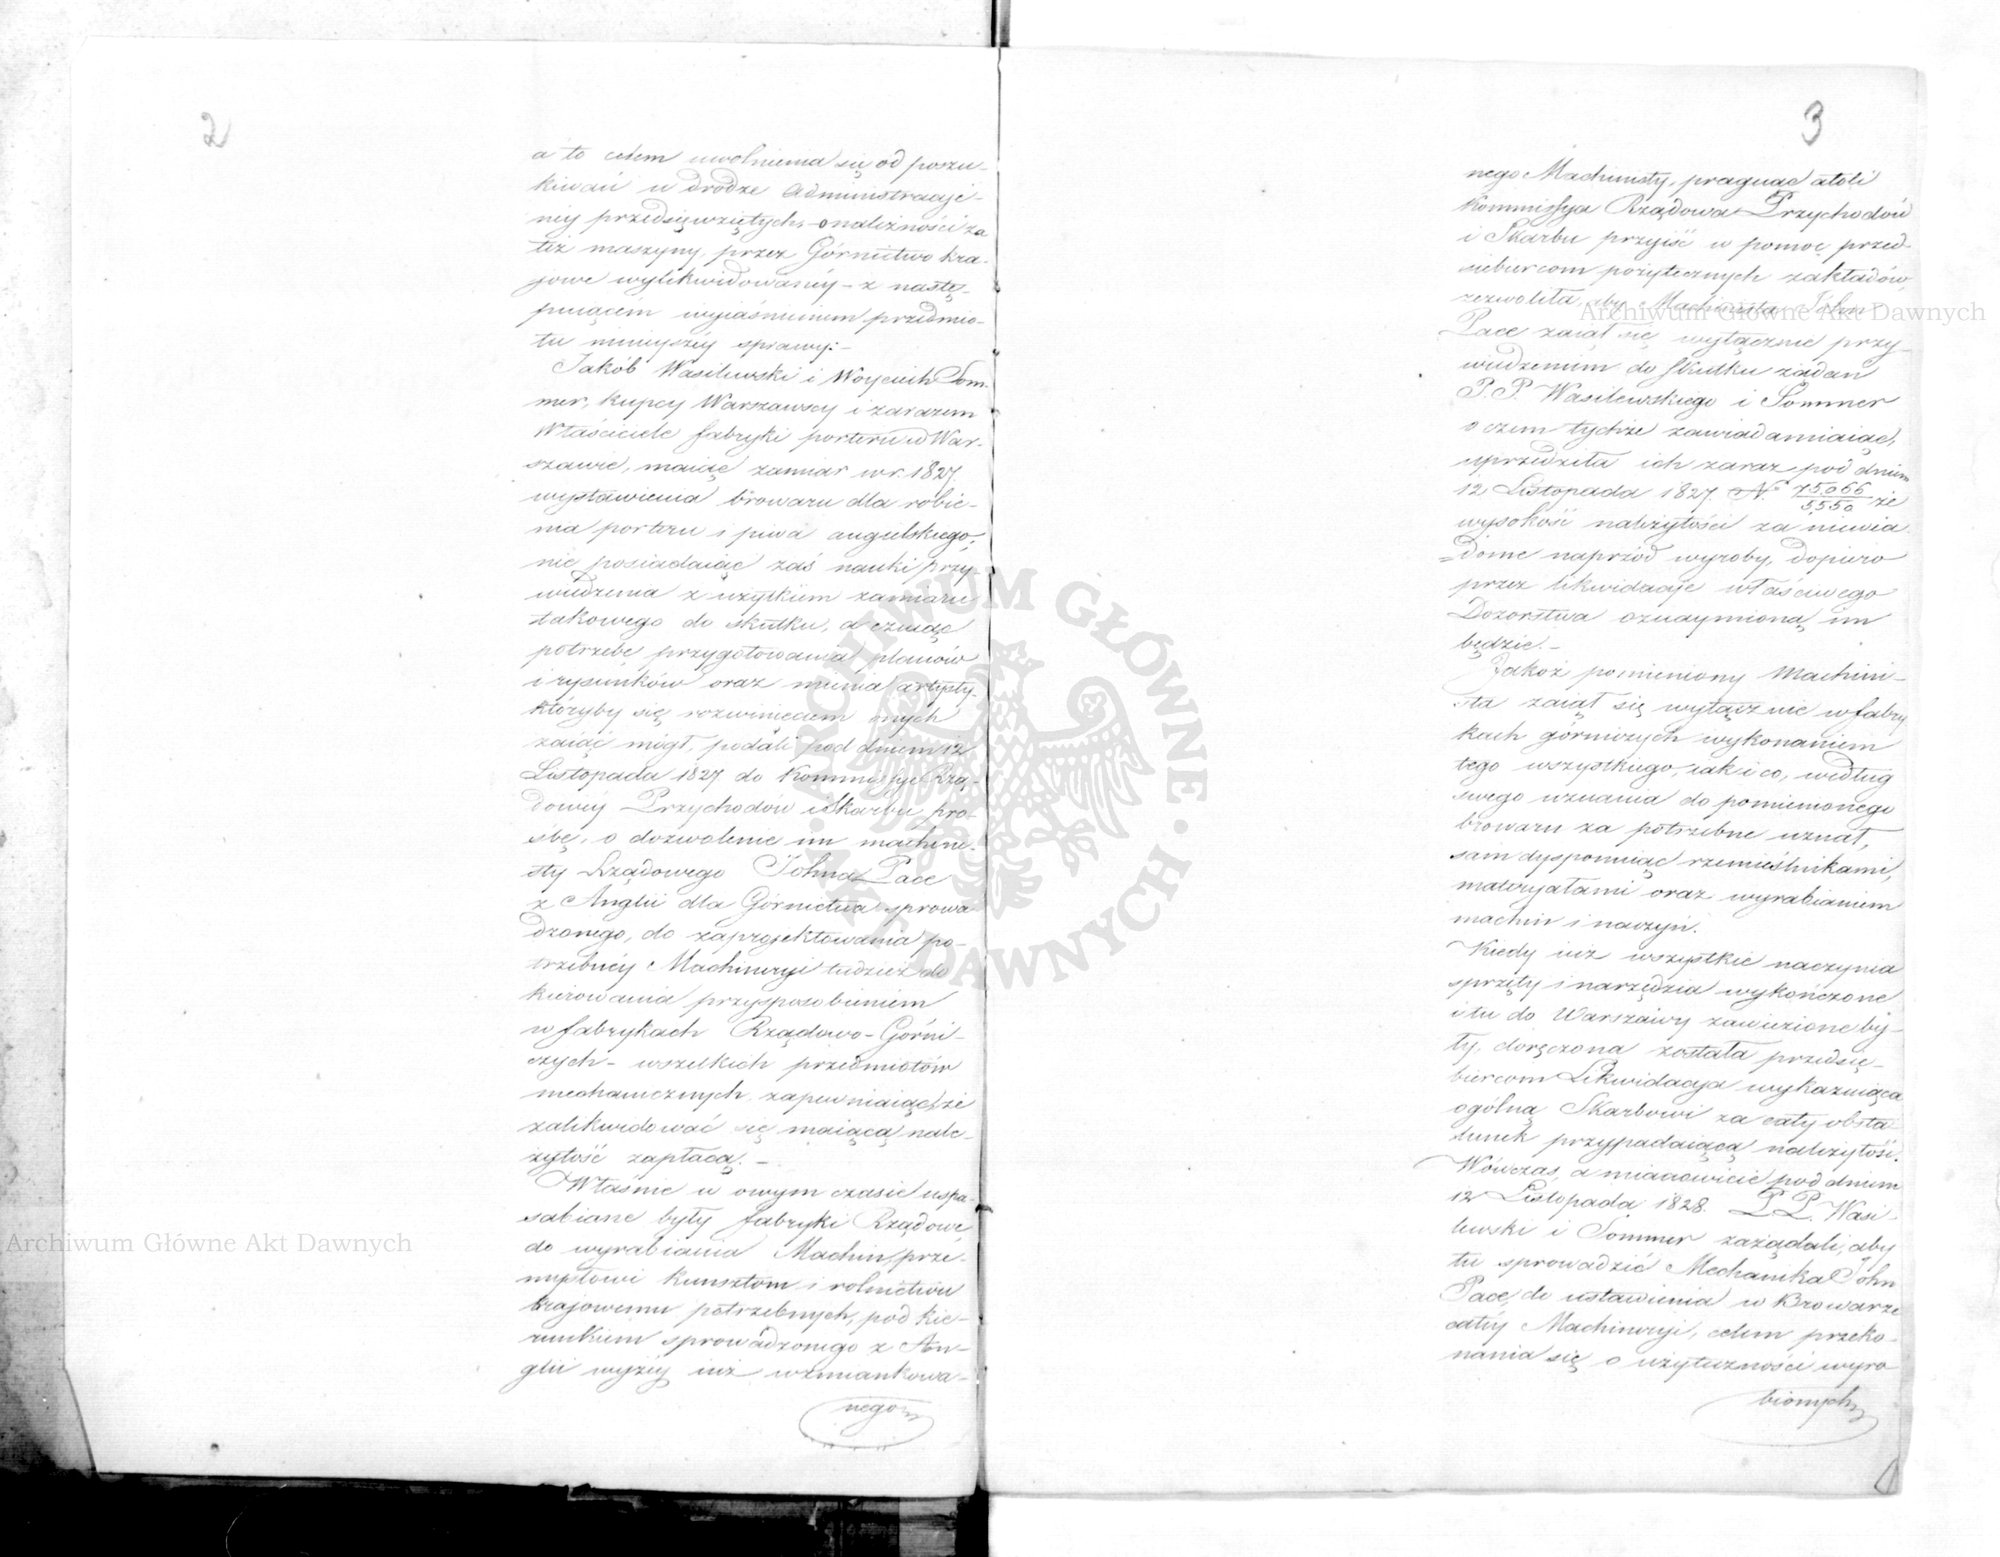 2
a to celem uwolnienia się od poszu-
kiwań w drodze Administracyj-
néy przedsięwziętych, o należności za
też maszyny, przez Górnictwo kra-
jowe wylikwidowanéy – z nastę-
puiącém wyiaśnieniem przedmio-
tu niniejszéy sprawy: –
Jakób Wasilewski i Woyciech Som-
mer, kupcy Warszawscy i zarazem
Właściciele fabryki porteru w War-
szawie, maiąc zamiar w r. 1827.
wystawienia browaru dla robie-
nia porteru i piwa angielskiego;
nie posiadaiąc zaś nauki przy-
wiedzenia z użytkiem zamiaru
takowego do skutku, a czuiąc
potrzebę przygotowania planów
i rysunków oraz mienia artysty,
któryby się rozwinięciem onych
zaiąć mógł, podali pod dniem 12
Listopada 1827 do Kommissyi Rzą-
dowéy Przychodów i Skarbu, pro-
śbę, o dozwolenie im machini-
sty Rządowego Johna Pace
z Anglii dla Górnictwa sprowa-
dzonego, do zaprojektowania po-
trzebnéy Machineryi tudzież do
kierowania przysposobieniem
w fabrykach Rządowo-Górni-
czych – wszelkich przedmiotów
mechanicznych zapewniaiąc, że
zalikwidować się maiącą nale-
żytość zapłacą. –
Właśnie w owym czasie uspa-
sabiane były fabryki Rządowe,
do wyrabiania Machin, prze-
mysłowi kunsztom i rolnictwu
krajowemu potrzebnych, pod kie-
runkiem sprowadzonego z An-
glii wyżéy iuż wzmiankowa-
nego
3
nego Machinisty, pragnąc atoli
Kommissya Rządowa Przychodów
i Skarbu przyiść w pomoc przed-
siebiercom pożytecznych zakładów,
zezwoliła, aby Machinista John
Pace zaiął się wyłącznie przy-
wiedzeniem do skutku żądań
P.P. Wasilewskiego i Sommer
o czem tychże zawiadamiaiąc,
uprzedziła ich zaraz pod dniem
12 Listopada 1827. Nº 75066/5550 że
wysokość należytości za niewia-
dome naprzód wyroby, dopiero
przez likwidacje właściwego
Dozorstwa oznaymioną im
będzie. –
Jakoż pomieniony Machini-
sta zaiął się wyłącznie w fabry
kach górniczych wykonaniem
tego wszystkiego, iak i co, według
swego uznania do pomienionego
browaru za potrzebne uznał,
sam dysponuiąc rzemieślnikami,
materyałami oraz wyrabianiem
machin i naczyń.
Kiedy iuż wszystkie naczynia
sprzęty i narzędzia wykończone
i tu do Warszawy zawiezione by-
ły, doręczona została przedsię-
biercom Likwidacya wykazuiąca
ogólną Skarbowi za cały obsta-
lunek przypadaiącą należytość.
Wówczas, a mianowicie pod dniem
12 Listopada 1828. P.P. Wasi-
lewski i Sommer zażądali, aby
tu sprowadzić Mechanika John
Pace, do ustawienia w Browarze
całéy Machineryi, celem przeko-
nania się o użyteczności wyro
bionych
Archiwum Główne Akt Dawnych
Archiwum Główne Akt Dawnych
ARCHIWUM GŁÓWNE · AKT DAWNYCH ·